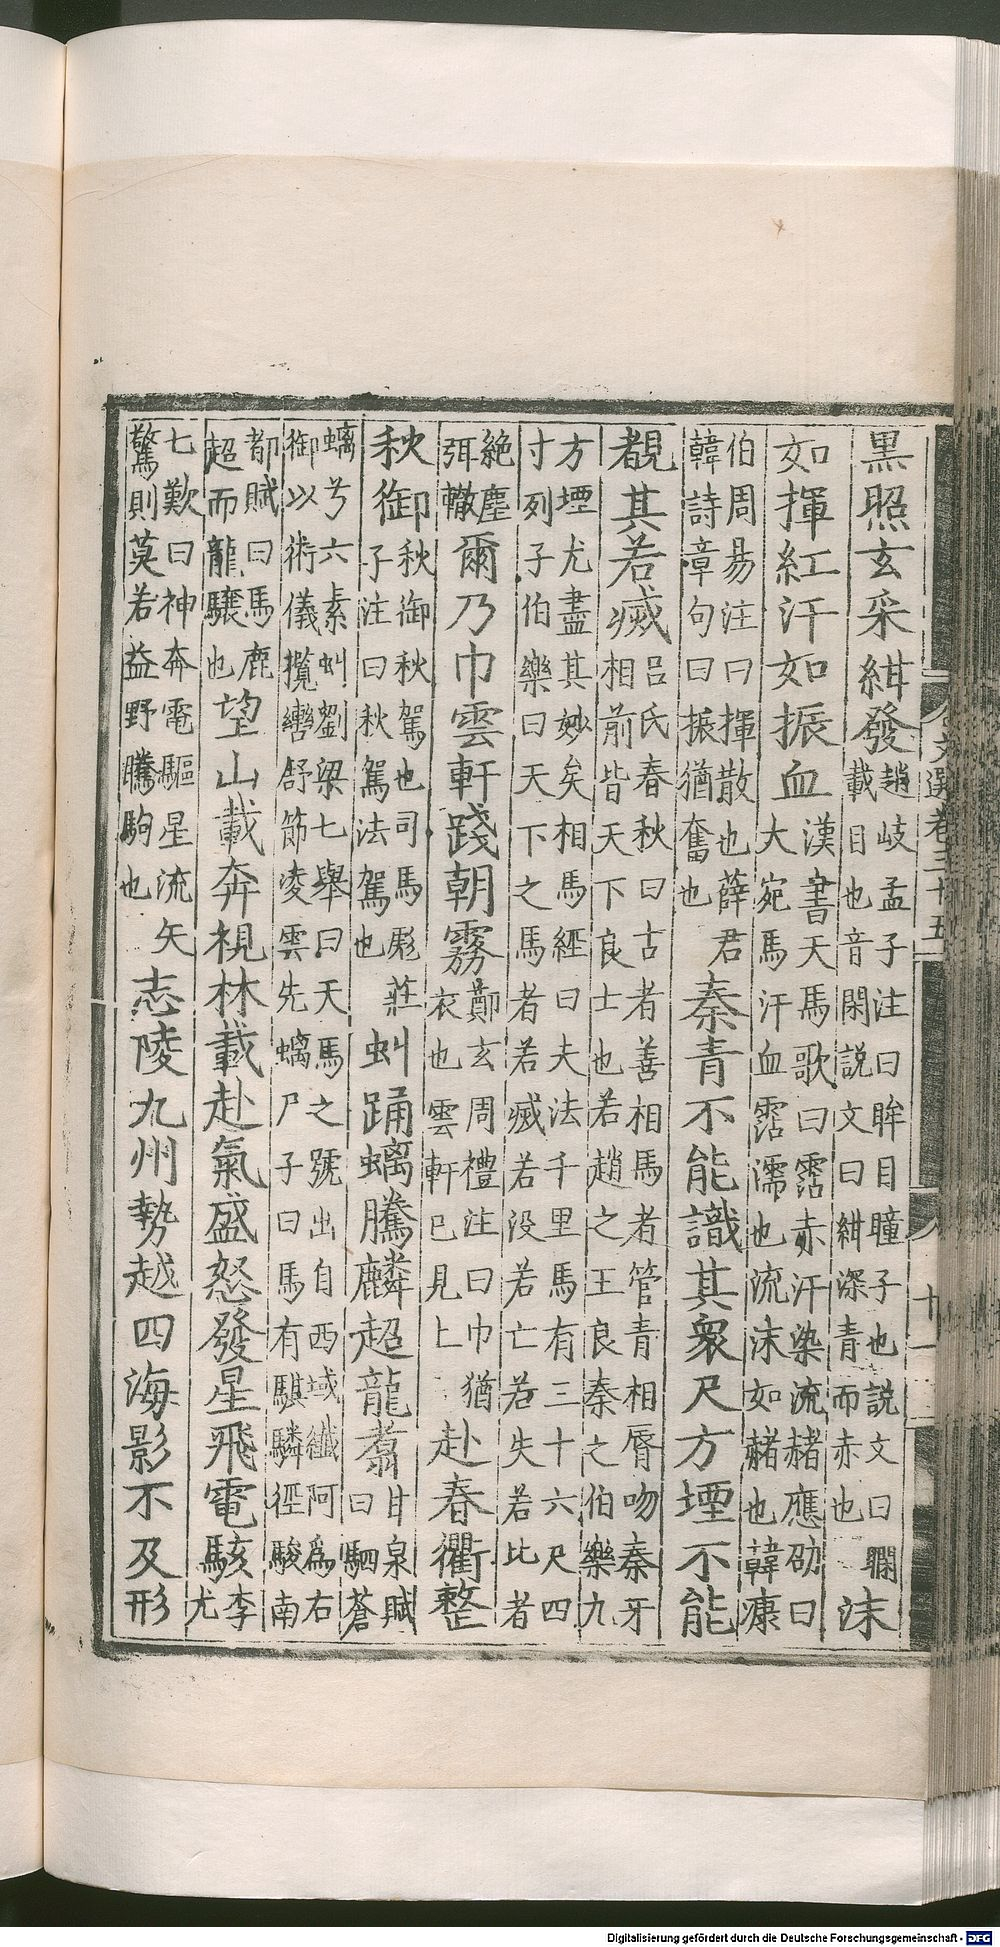 黒照玄采紺發趙岐孟子注曰眸目瞳子也説文曰瞷
載目也音閑説文曰紺深青而赤也沫
如揮紅汗如振血漢書天馬歌曰霑赤汗染流赭應劭曰
大宛馬汗血霑濡也流沫如赭也韓康
伯周易注曰揮散也薛君
韓詩章句曰振猶奮也秦青不能識其衆尺方堙不能
覩其若滅吕氏春秋曰古者善相馬者管青相脣吻秦牙
相前皆天下良士也若趙之王良秦之伯樂九
方堙尤盡其妙矣相馬經曰夫法千里馬有三十六尺四
寸列子伯樂曰天下之馬者若滅若没若亡若失若比者
絶塵
弭轍爾乃巾雲軒踐朝霧鄭玄周禮注曰巾猶
衣也雲軒已見上赴春衢整
秋御秋御秋駕也司馬彪莊
子注曰秋駕法駕也虯踊螭騰麟超龍翥甘泉賦
曰駟蒼
螭兮六素虯劉梁七舉曰天馬之號出自西域纎阿爲右
御以術儀攬轡舒節凌雲先螭尸子曰馬有騏驎徑駿南
都賦曰馬鹿
超而龍驤也望山載奔視林載赴氣盛怒發星飛電駭李
尤
七歎曰神奔電驅星流矢
驚則莫若益野騰駒也志陵九州勢越四海影不及形
文選卷三十五
十一
Digitalisierung gefördert durch die Deutsche Forschungsgemeinschaft - DFG